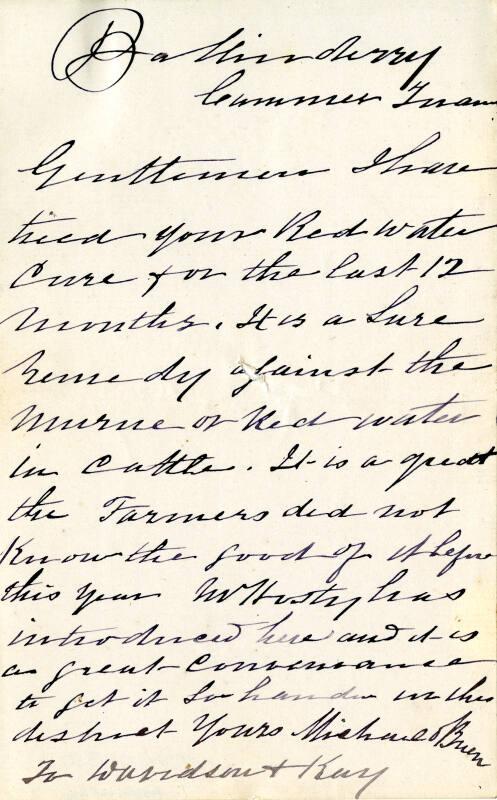 Ballinderry
Cummer Tuam
Gentlemen I have
tried your Red water
Cure for the last 12
months. It is a Sure
remedy against the
murne or Red water
in Cattle. It is a great
the Farmers did not
Know the good of it before
this year Mr Hosty has
introduced here and it is
a great Convenance
to get it So hande in this
district Yours Michael O Brien
To Davidson & Kay